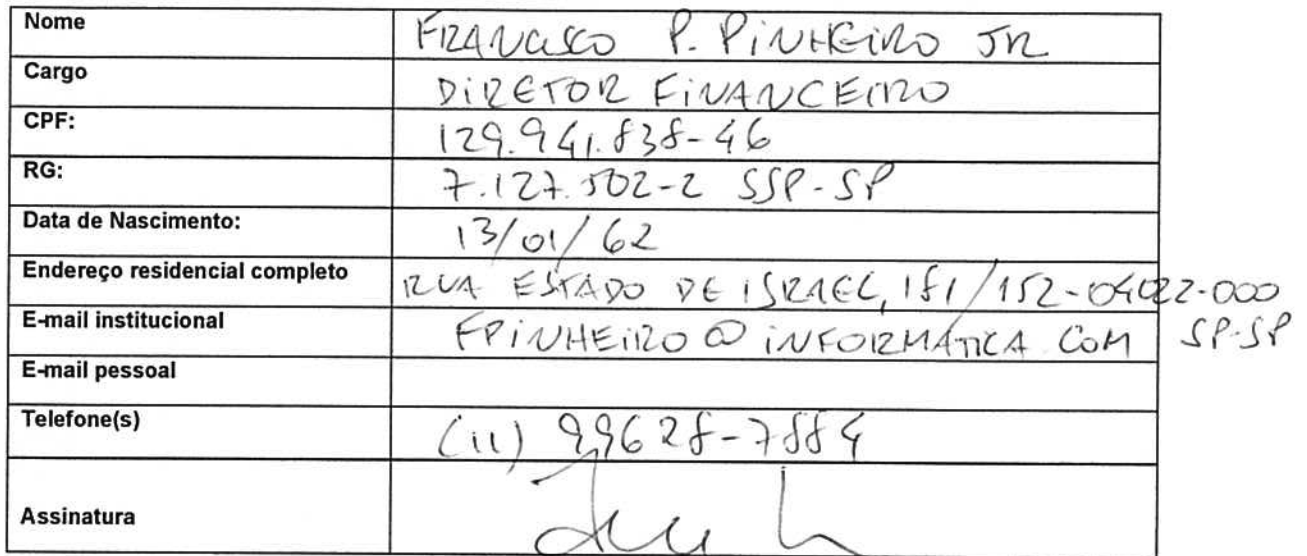 Nome FRANCISCO P. PINHEIRO JR
Cargo DIRETOR FINANCEIRO
CPF: 129.941.838-46
RG: 7.127.502-2 SSP-SP
Data de Nascimento: 13/01/62
Endereço residencial completo RUA ESTADO DE ISRAEL, 181/152-04022-000
SP-SP
E-mail institucional FPINHEIRO@INFORMÁTICA.COM
E-mail pessoal
Telefone(s) (11) 99628-7884
Assinatura